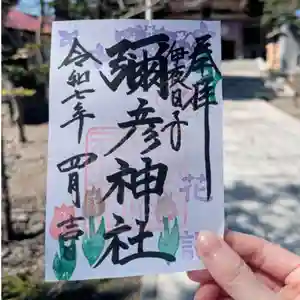 奉拝
伊夜日子
彌彦神社
令和七年四月吉日
花詣